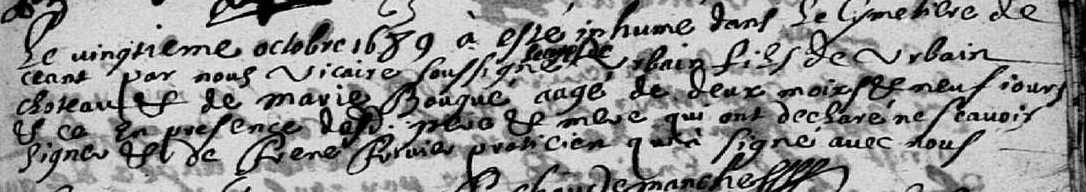 Le vingtieme octobre 1689 à esté inhumé dans Le Cymetiere de
ceant par nous vicaire soussigné le corps de Urbain fils de Urbain
choteau & de marie Bouqué aagé de deux moirs & neuf iours
& ce en presence desd. pere & mere qui ont declaré ne scavoir
signer & de René praticien qui à signé avec nous